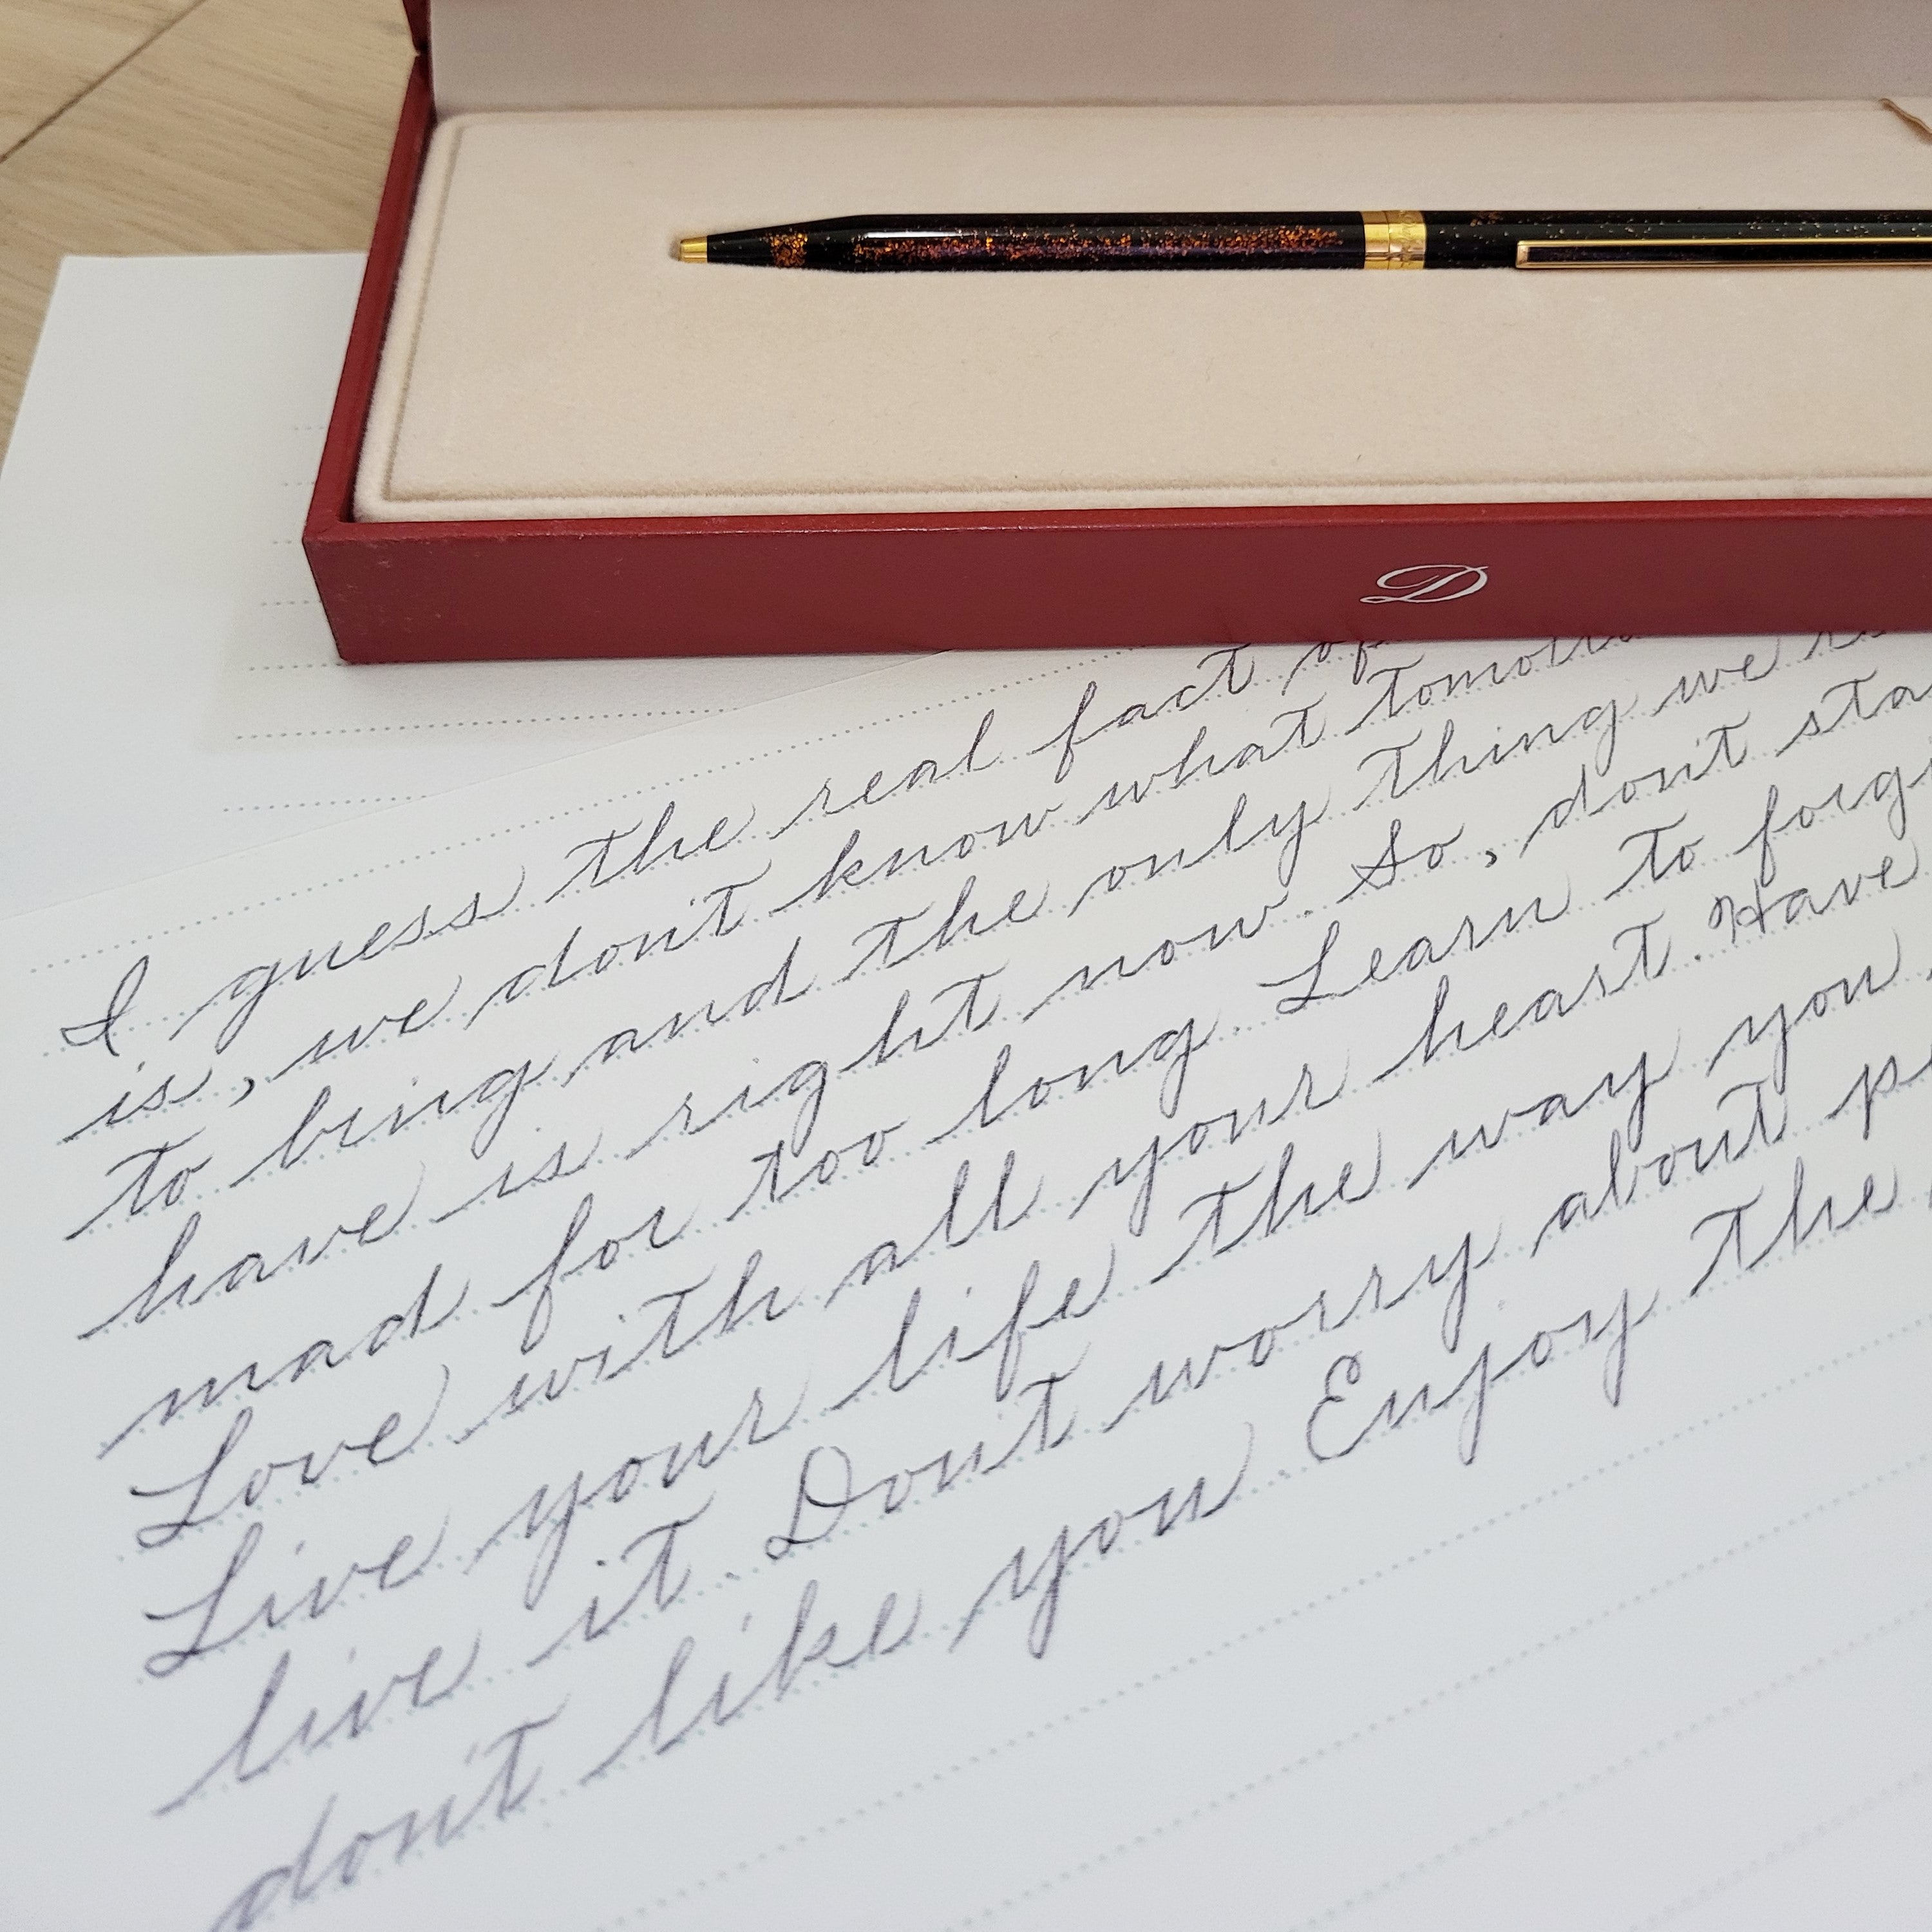 D
I guess the real fact of
is, we don't know what
to bring and the only thing we
have is right now. So, don't
mad for too long. Learn to
Love with all your heart. Have
Live your life the way you
live it. Don't worry about
don't like you. Enjoy the